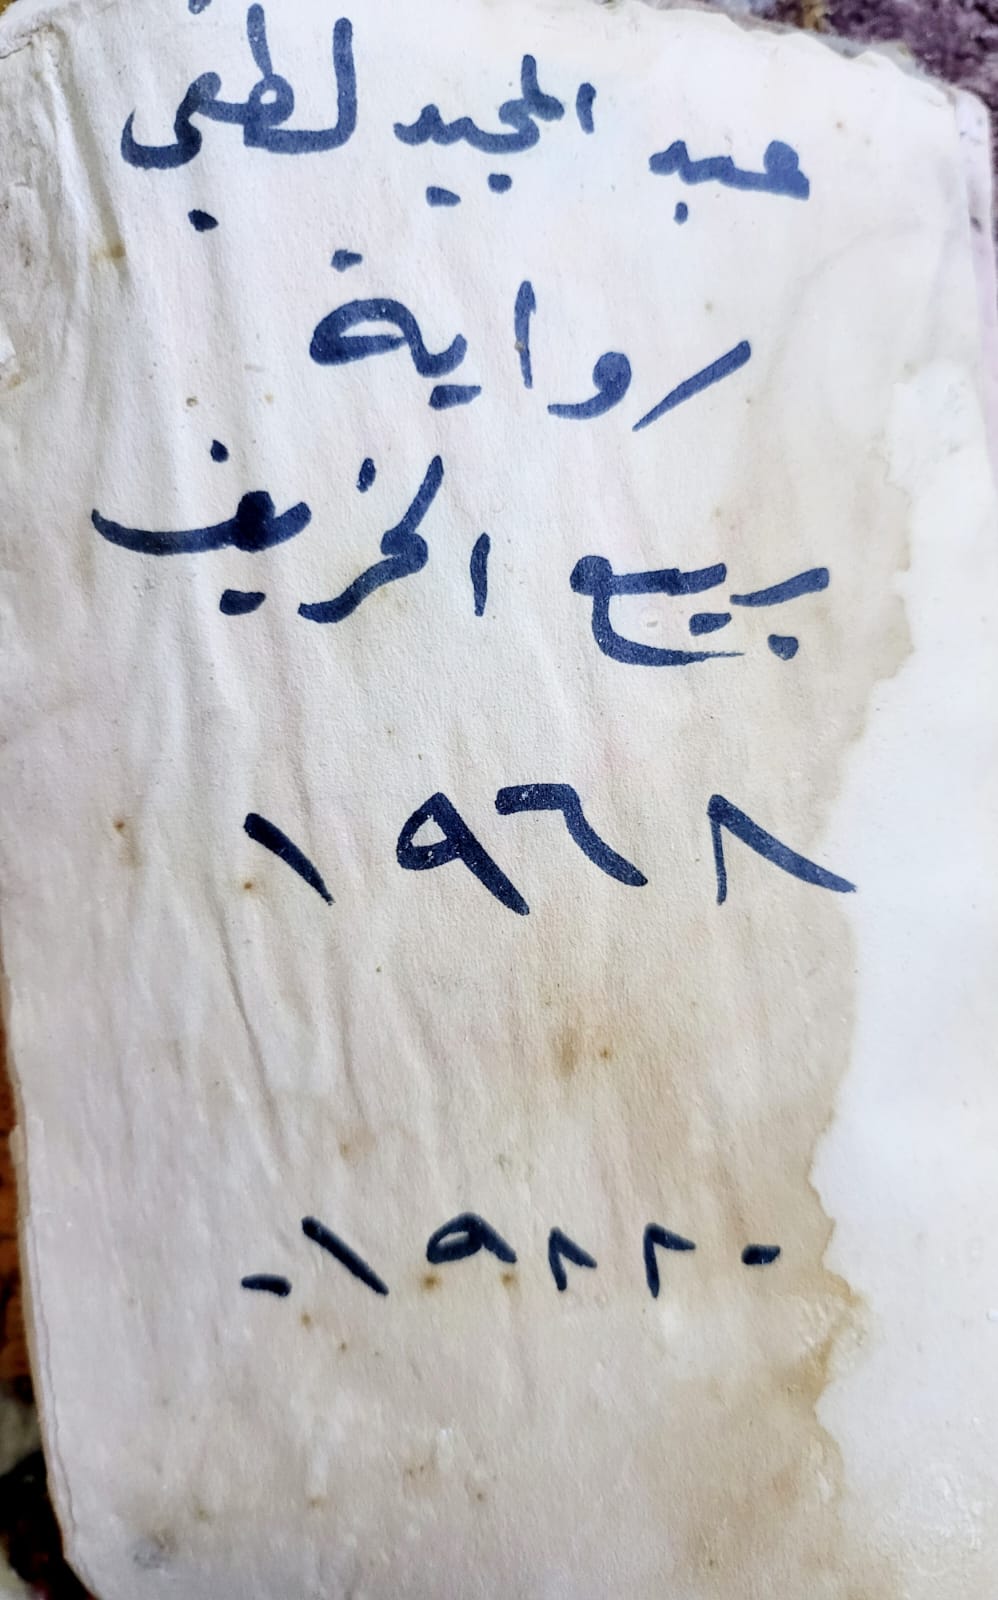 عبد المجيد لطفي
رواية
ربيع الخريف
١٩٦٨